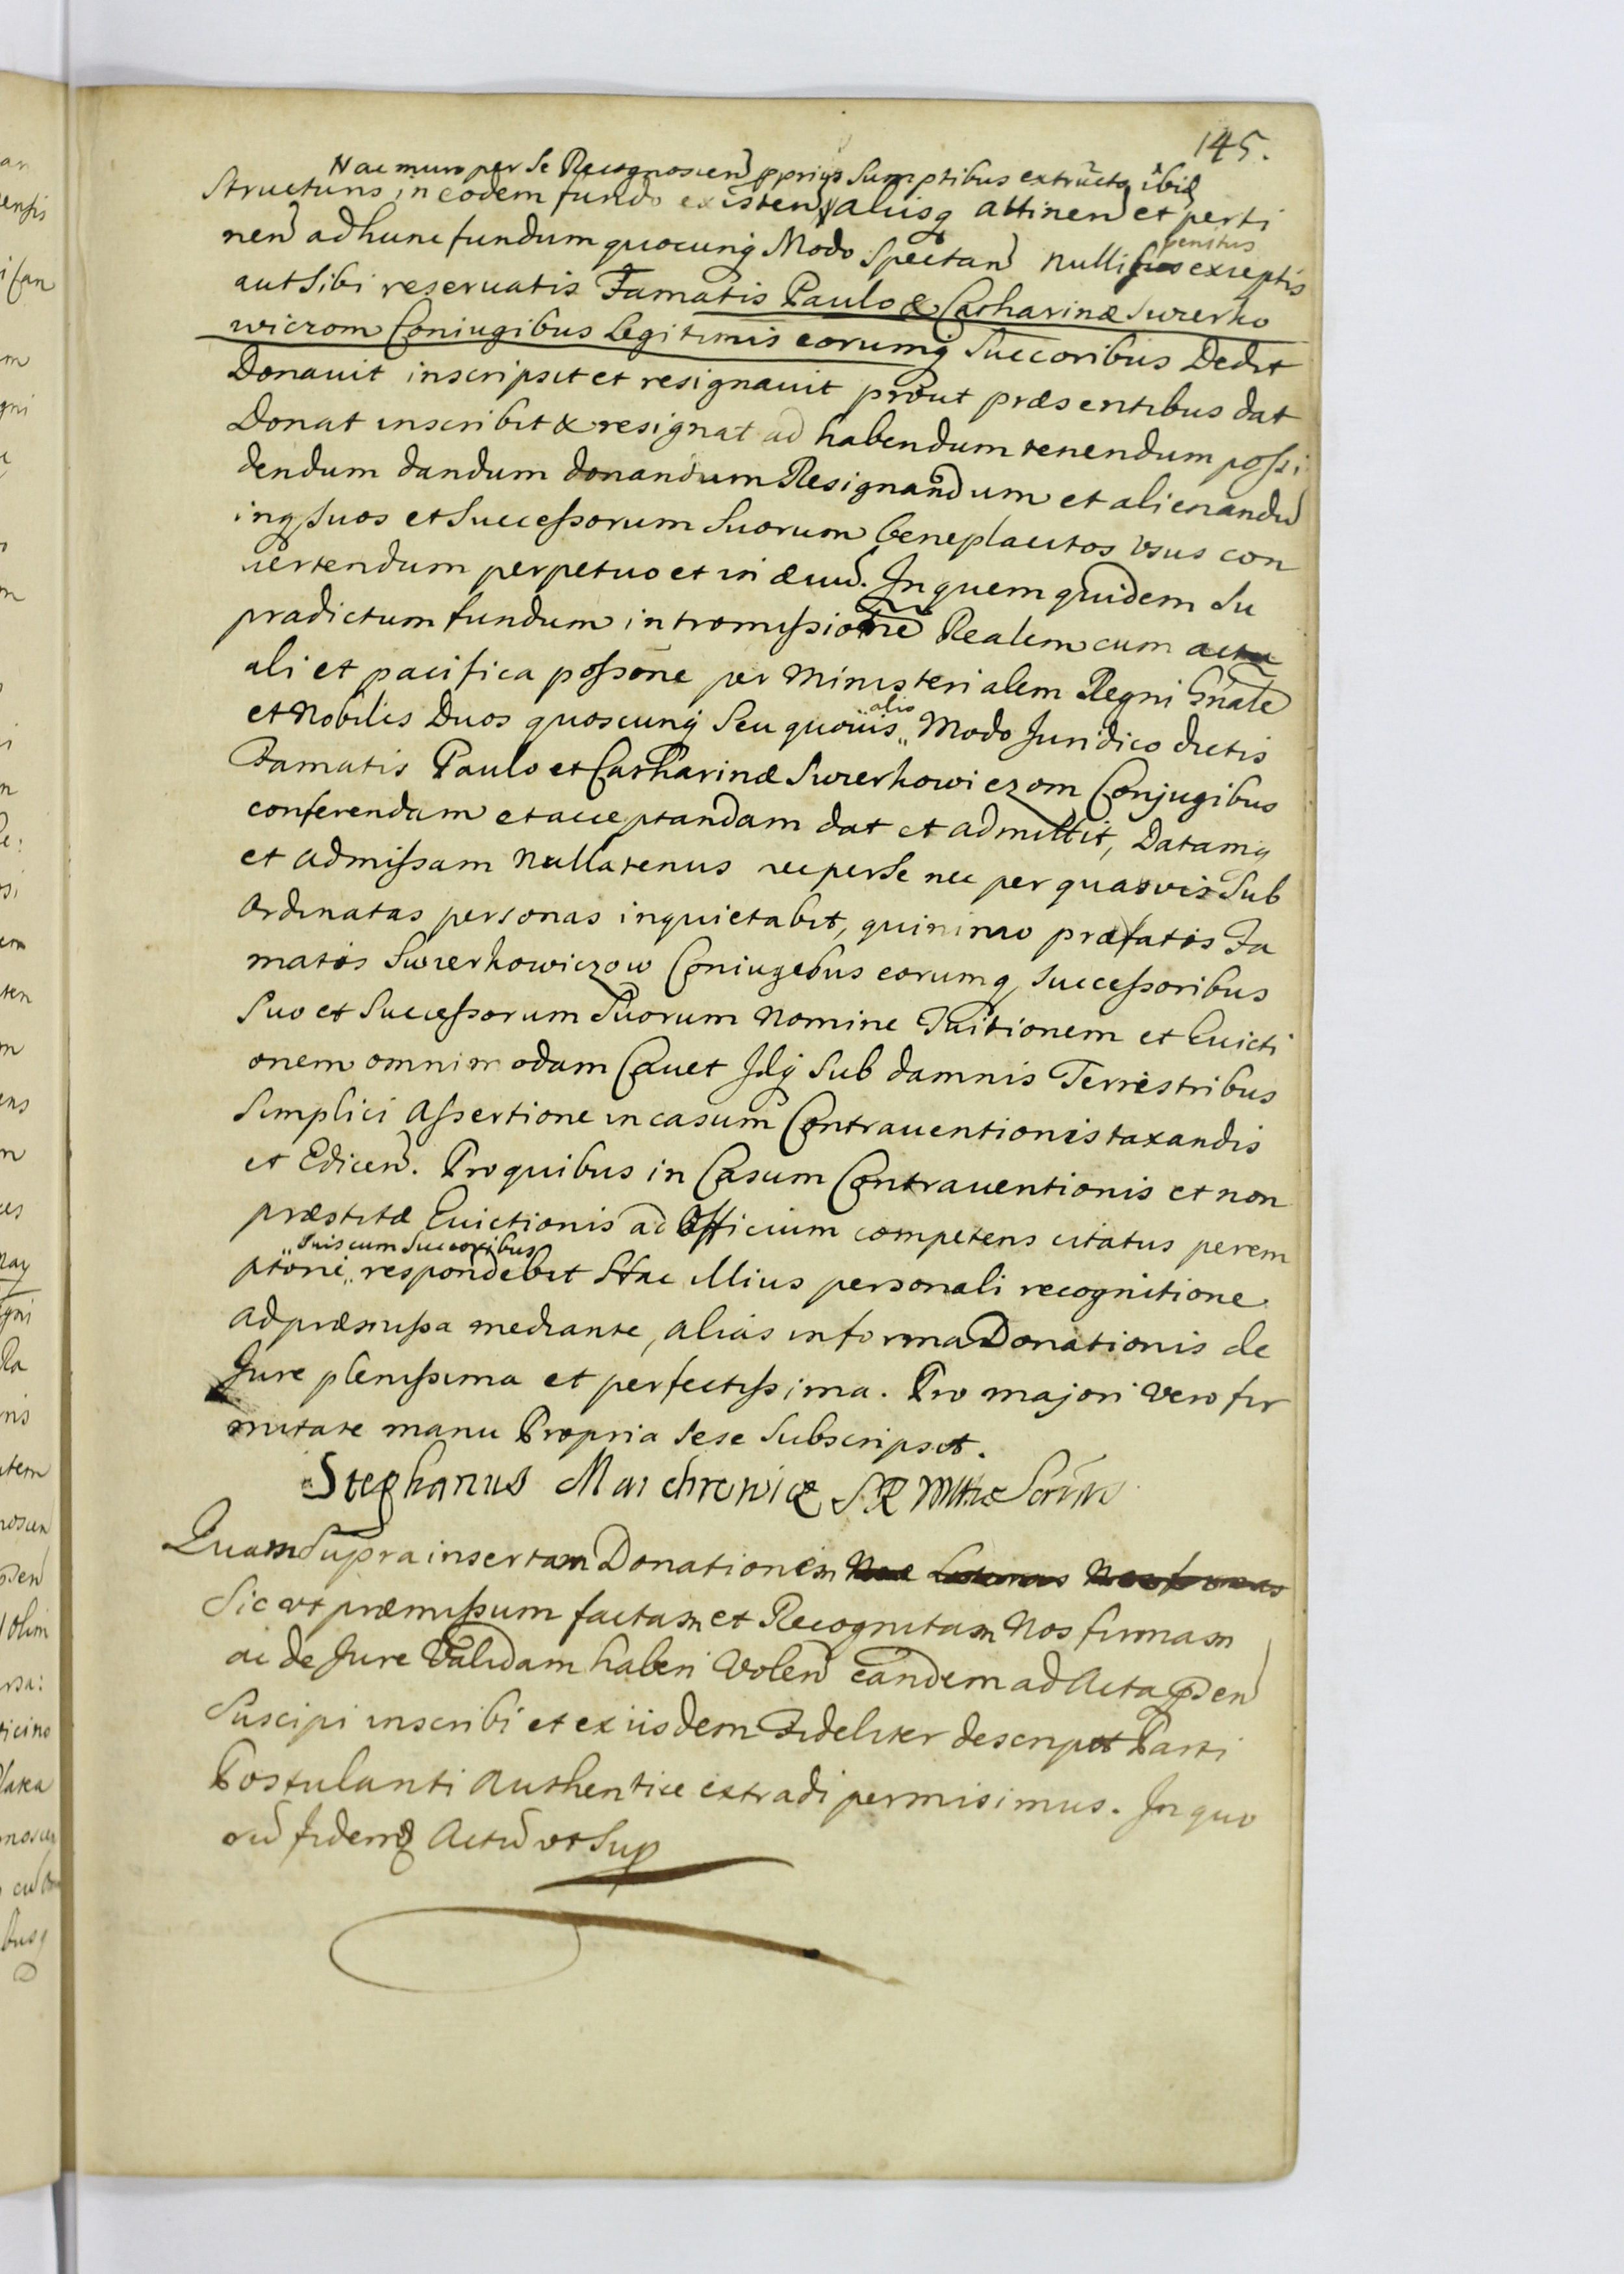 145.
N ac muro per Se Recognoscen pprijs Sumptibus extructo ibid
Structuris in eodem fundo existen alijsq attinen et perti
nen ad hunc fundum quocunq Modo Spectan nullis penitus exceptis
aut Sibi reseruatis Famatis Paulo & Catharinæ Swierko
wiczom Coniugibus Legitimis eorumq Succoribus Dedit
Donauit inscripsit et resignauit prout præsentibus dat
Donat inscribit & resignat ad habendum tenendum possi
dendum dandum donandum Resignandum et alienandu
inq suos et Successorum Suorum beneplacitos vsus con
uertendum perpetuo et in æuu. In quem quidem Su
pradictum fundum intromissione Realem cum actu
ali et pacifica possone per Ministerialem Regni Gnale
et Nobiles Duos quoscunq Seu quouis „alio„ Modo Juridico dictis
Famatis Paulo et Catharinæ Swierkowiczom Conjugibus
conferendam et acceptandam dat et admittit, Datamq
et admissam Nullatenus nec per Se nec per quasvis Sub
ordinatas personas inquietabit, quinimo præfatis Fa
matis Swierkowiczow Coniugibus eorumq Successoribus
Suo et Successorum Suorum Nomine Tuitionem et Euicti
onem omnimodam Cauet Idq Sub damnis Terrestribus
Simplici Assertione in casum Contrauentionis taxandis
et Edicen. Pro quibus in Casum Contrauentionis et non
præstitæ Euictionis ad Officium competens citatus perem
ptorie „suis cum Succoribus„ respondebit Hac illius personali recognitione
ad præmissa mediante, alias in forma Donationis de
Jure plenissima et perfectissima. Pro majori vero fir
mitate manu Propria Sese Subscripsit.
Stephanus Maichrowicz SRMttis
Quam Supra insertam Donationem
Sic ut præmissum factam et Recognitam Nos firmam
ac de Jure Validam haberi Volen eandem ad Acta pden
Suscipi inscribi et ex iisdem Fideliter descript Parti
Postulanti Authentice extradi permisimus. In quo
ru fidem Actu vt Sup